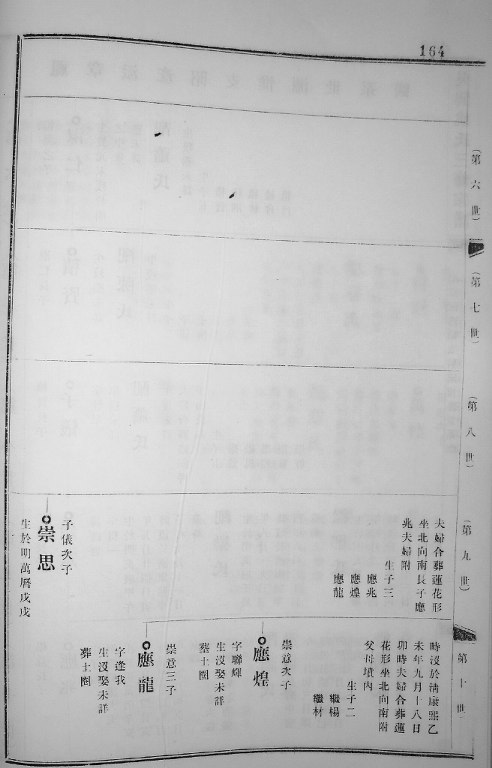 164
（第六世）
（第七世）
（第八世）
（第九世）
夫婦合葬蓮花形
坐北向南長子應
兆夫婦附
生子三
應兆
應煌
應龍
子儀次子
崇思
生於明萬曆戊戌
（第十世）
時沒於清康熙乙
未年九月十八日
卯時夫婦合葬蓮
花形坐北向南附
父母墳內
生子二
繼楊
繼材
崇意次子
應煌
字聯輝
生沒娶未詳
墓土圈
崇意三子
應龍
字逢我
生沒娶未詳
葬土圈